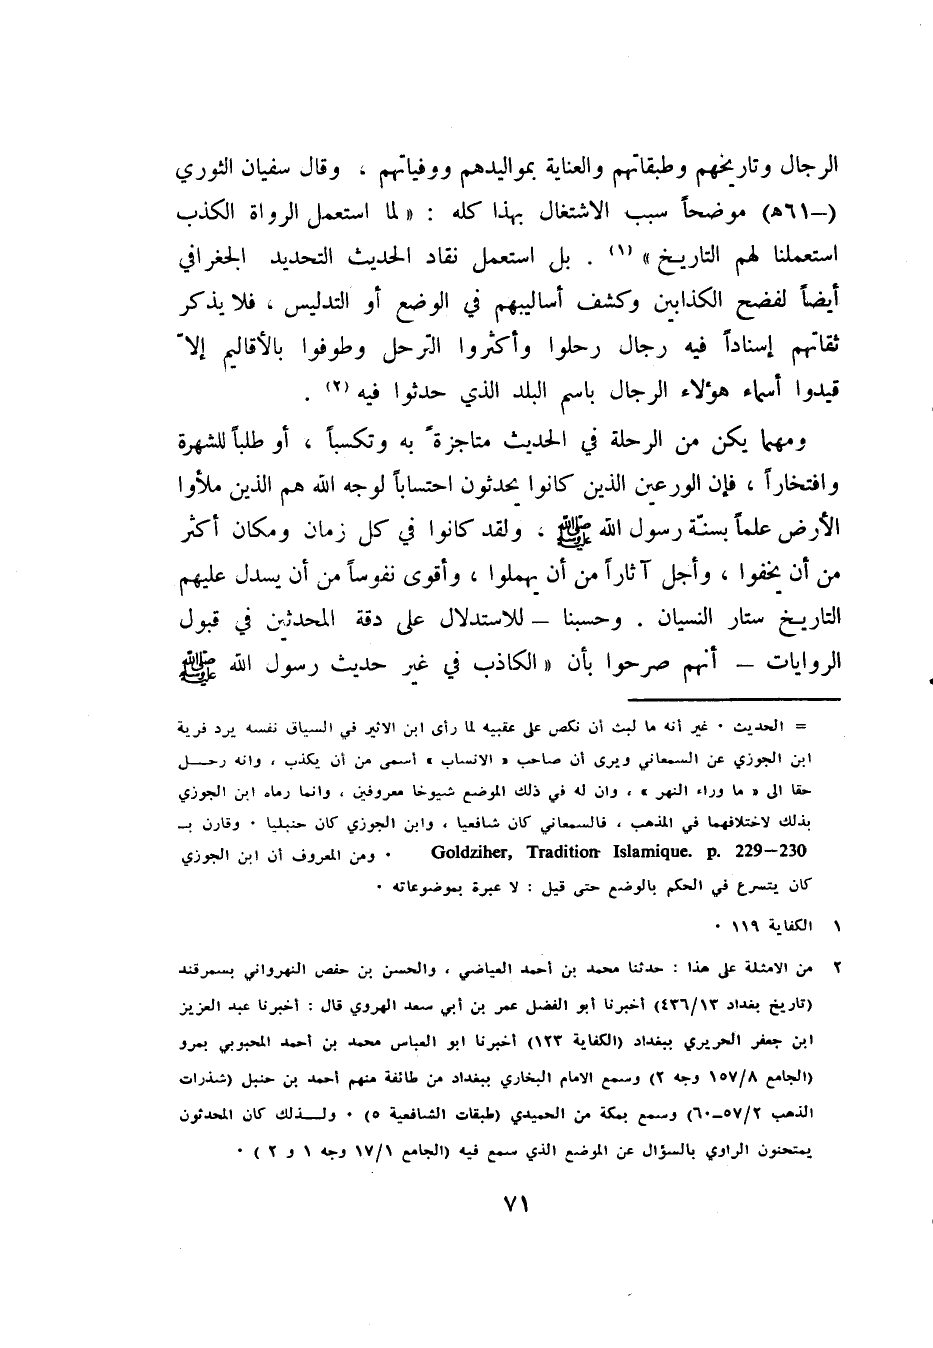 الرجال وتاريخهم وطبقاتهم والعناية بمواليدهم ووفياتهم ، وقال سفيان الثوري
(–٦١ه‍) موضحاً سبب الاشتغال بهذا كله : « لما استعمل الرواة الكذب
استعملنا لهم التاريخ » (١) . بل استعمل نقاد الحديث التحديد الجغرافي
أيضاً لفضح الكذابين وكشف أساليبهم في الوضع أو التدليس ، فلا يذكر
ثقاتهم إسناداً فيه رجال رحلوا وأكثروا الترحل وطوفوا بالأقاليم إلاّ
قيدوا أسماء هؤلاء الرجال باسم البلد الذي حدثوا فيه (٢) .
ومهما يكن من الرحلة في الحديث متاجرةً به وتكسباً ، أو طلباً للشهرة
وافتخاراً ، فإن الورعين الذين كانوا يحدثون احتساباً لوجه الله هم الذين ملأوا
الأرض علماً بسنّة رسول الله ﷺ ، ولقد كانوا في كل زمان ومكان أكثر
من أن يخفوا ، وأجل آثاراً من أن يهملوا ، وأقوى نفوساً من أن يسدل عليهم
التاريخ ستار النسيان . وحسبنا – للاستدلال على دقة المحدثين في قبول
الروايات – أنهم صرحوا بأن « الكاذب في غير حديث رسول الله ﷺ
= الحديث ٠ غير أنه ما لبث أن نكص على عقبيه لما رأى ابن الاثير في السياق نفسه يرد فرية
ابن الجوزي عن السمعاني ويرى أن صاحب « الانساب » أسمى من أن يكذب ، وانه رحـــل
حقا الى « ما وراء النهر » ، وان له في ذلك الموضع شيوخا معروفين ، وانما رماه ابن الجوزي
بذلك لاختلافهما في المذهب ، فالسمعاني كان شافعيا ، وابن الجوزي كان حنبليا ٠ وقارن بــ
Goldziher, Tradition Islamique. p. 229–230 ٠ ومن المعروف أن ابن الجوزي
كان يتسرع في الحكم بالوضع حتى قيل : لا عبرة بموضوعاته ٠
١ الكفاية ١١٩ ٠
٢ من الامثلة على هذا : حدثنا محمد بن أحمد العياضي ، والحسن بن حفص النهرواني بسمرقند
(تاريخ بغداد ٤٣٦/١٣) أخبرنا أبو الفضل عمر بن أبي سعد الهروي قال : أخبرنا عبد العزيز
ابن جعفر الحريري ببغداد (الكفاية ١٢٣) أخبرنا ابو العباس محمد بن أحمد المحبوبي بمرو
(الجامع ١٥٧/٨ وجه ٢) وسمع الامام البخاري ببغداد من طائفة منهم أحمد بن حنبل (شذرات
الذهب ٥٧/٢–٦٠) وسمع بمكة من الحميدي (طبقات الشافعية ٥) ٠ ولــــذلك كان المحدثون
يمتحنون الراوي بالسؤال عن الموضع الذي سمع فيه (الجامع ١٧/١ وجه ١ و ٢ ) ٠
٧١